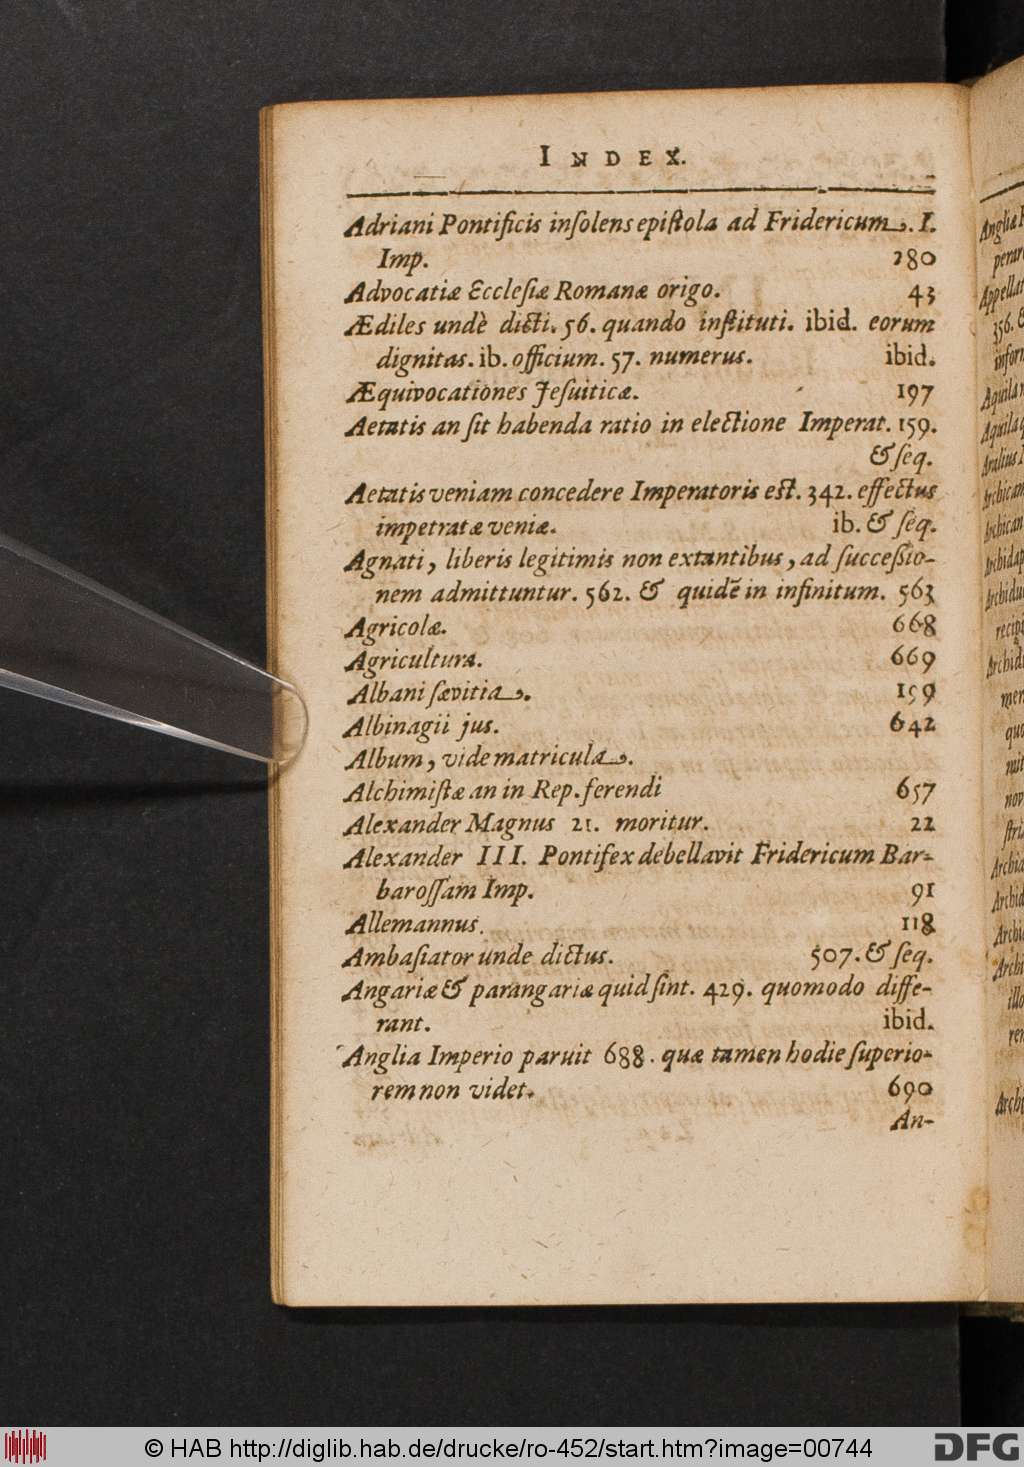 INDEX.
Adriani Pontificis inſolens epiſtola ad Fridericum. I.
Imp. 280
Advocatiæ Eccleſiæ Romanæ origo. 43
Ædiles undè dicti. 56. quando inſtituti. ibid. eorum
dignitas. ib. officium. 57. numerus. ibid.
Æquivocationes Jeſuiticæ. 197
Aetatis an ſit habenda ratio in electione Imperat. 159.
& ſeq.
Aetatis veniam concedere Imperatoris eſt. 342. effectus
impetratæ veniæ. ib. & ſeq.
Agnati, liberis legitimis non extantibus, ad ſucceſsio-
nem admittuntur. 562. & quidē in infinitum. 563
Agricolæ. 668
Agricultura. 669
Albani ſævitia. 199
Albinagii jus. 642
Album, vide matricula.
Alchimiſtæ an in Rep. ferendi 657
Alexander Magnus 21. moritur. 22
Alexander III. Pontifex debellavit Fridericum Bar-
baroſſam Imp. 91
Allemannus. 118
Ambaſiator unde dictus. 507. & ſeq.
Angariæ & parangariæ quid ſint. 429. quomodo diffe-
rant. ibid.
Anglia Imperio paruit 688. quæ tamen hodie ſuperio-
rem non videt. 690
An-
Anglia
Appellat
356. &
inform
Archidu
© HAB http://diglib.hab.de/drucke/ro-452/start.htm?image=00744
DFG